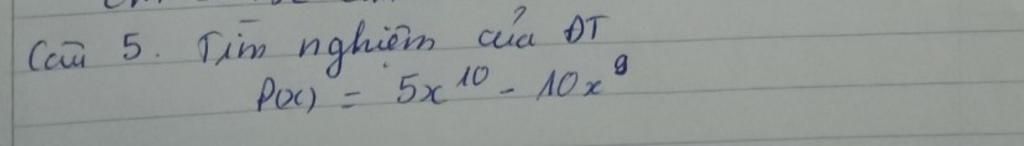 Câu 5. Tìm nghiệm của ĐT
P(x) = 5x¹⁰ - 10x⁹